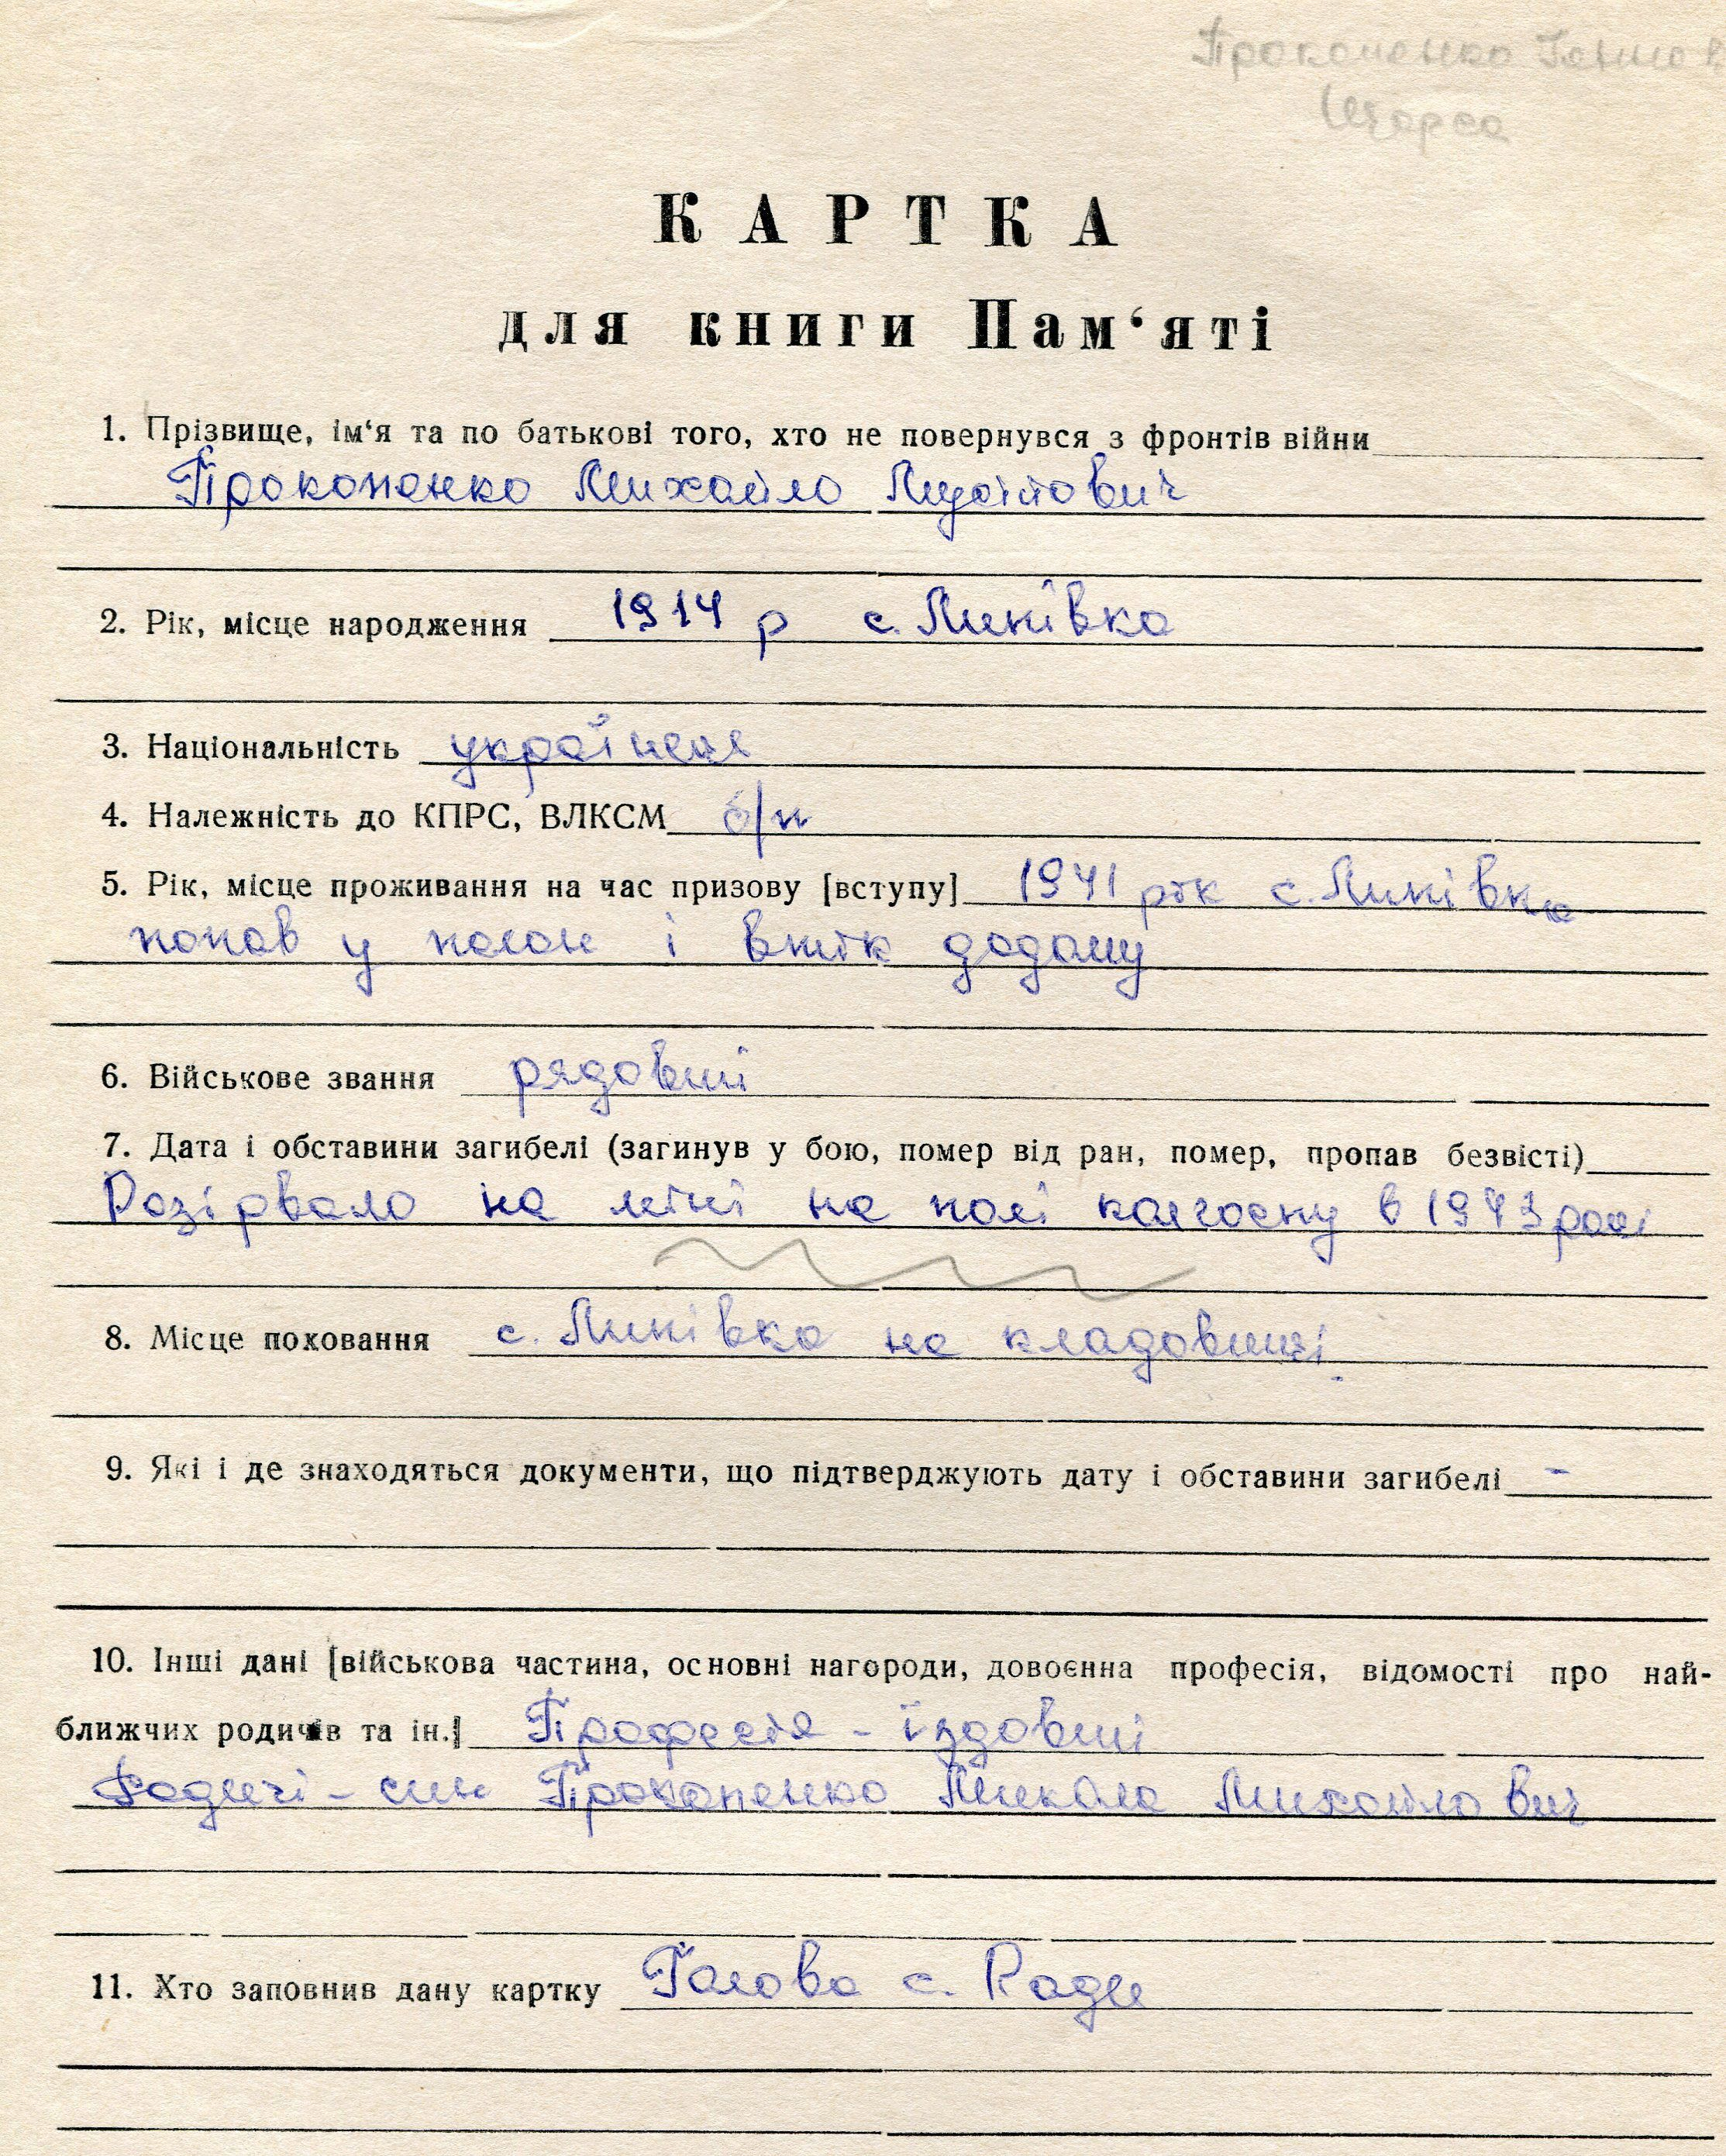 Прокопенко
Щорса
КАРТКА
для книги Пам‘яті
1. Прізвище, ім‘я та по батькові того, хто не повернувся з фронтів війни
Прокопенко Михайло
2. Рік, місце народження 1914 р с. Липівка
3. Національність українец
4. Належність до КПРС, ВЛКСМ б/п
5. Рік, місце проживання на час призову [вступу] 1941 рік с. Липівка
попав у полон і втік додому
6. Військове звання рядовий
7. Дата і обставини загибелі (загинув у бою, помер від ран, помер, пропав безвісті)
Розірвало на міні на полі колгоспу в 1943 році
8. Місце поховання с. Липівка на кладовищі
9. Які і де знаходяться документи, що підтверджують дату і обставини загибелі -
10. Інші дані [військова частина, основні нагороди, довоєнна професія, відомості про най-
ближчих родичів та ін.] Професія - їздовий
Родичі - син Прокопенко Микола Михайлович
11. Хто заповнив дану картку Голова с. Ради